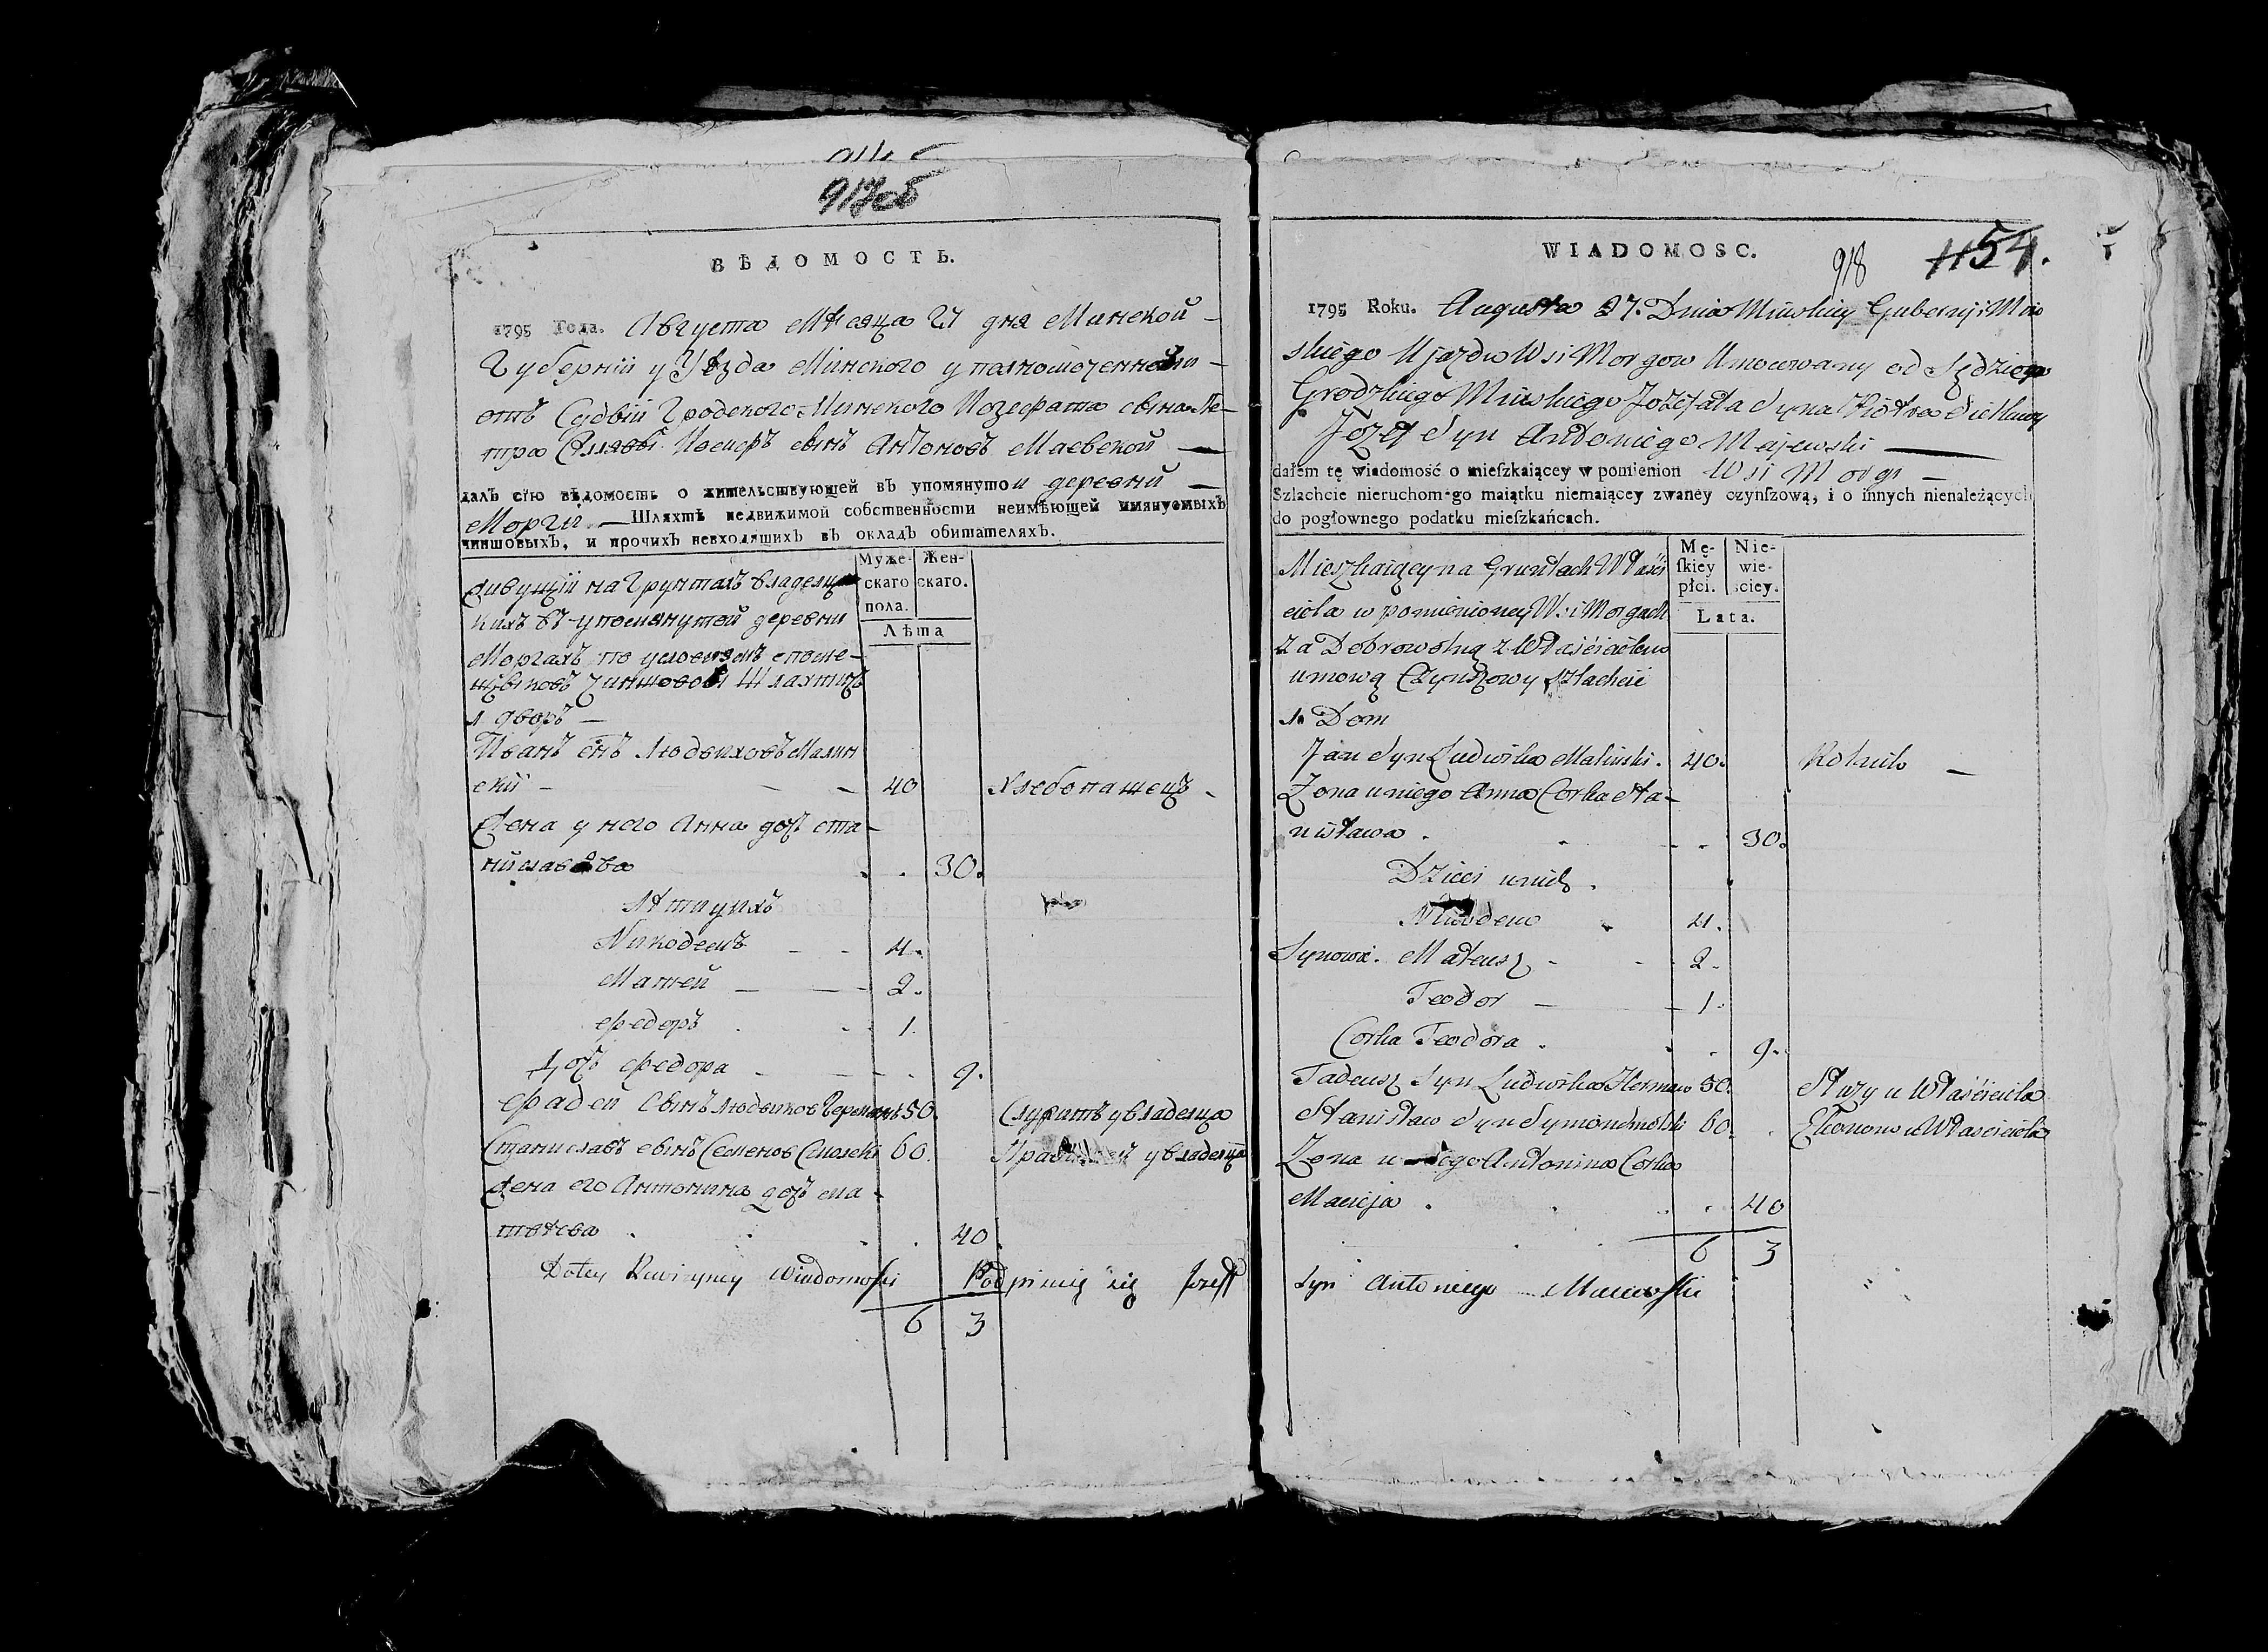 917об
ВѢДОМОСТЬ.
1795 Года. Августа Мѣсяца 27 дня Минской
Губерніи уѣзда Минского уполномоченной
отъ Судьіи Гродского Минского Иозефата сына Пе-
тра Иосифъ сынъ Антоновъ Маевской
далъ сію вѣдомость о жительствующей въ упомянутои деревни
Морги Шляхтѣ недвижимой собственности неимѣющей имянуемыхъ
чиншовыхъ, и прочихъ невходящихъ въ окладъ обитателяхъ.
Муже- Жен-
скаго скаго.
пола.
Лѣта
Живущіи на Грунтахъ владелцо
кихъ въ упомянутой деревни
Моргахъ по условіямъ споме-
щиковъ чиншовои Шляхтичъ
1 дворъ
Иванъ снъ Людвиховъ Малин
скій 40 хлебопашецъ
Жена у него Анна дочь Ста-
ниславова 30.
дѣти у ихъ
Никодемъ 4.
Матей 2.
Федоръ 1.
Дочь Федора 9.
Фадей Сынъ Людвиков Германъ 50. Служитъ у владелца
Станиславъ сынъ Семенов Смолски 60. у владелца
Жена его Антонина дочь Ма-
твѣева 40
Do tey Rewizyney Wiadomosci Podpisuię się Jozeff
6 3
WIADOMOSC.
918 1154.
1795 Roku. Augusta 27. Dnia Minskiey Gubernij Min
skiego Ujazdu Wsi Morgow Umocowany od Sędziego
Grodzkiego Minskiego Jozefata Syna Piotra
Jozef Syn Antoniego Majewski
dałem tę wiadomość o mieſzkaiącey w pomienion Wsi Morgi
Szlachcie nieruchomego maiątku niemaiącey zwaney czynſzową, i o innych nienależących
do pogłownego podatku mieſzkańcach.
Mę- Nie-
ſkiey wie-
płci. ściey.
Lata.
Mieszkaiącey na Gruntach Właści
ciela w pomienioney Wsi Morgach
Za Dobrowolną z Właścicielem
umową Czynszowy szlachcic
1. Dom
Jan Syn Ludwika Malinski. 40. Rolnik
Zona u niego Anna Corka Sta-
nisława 30.
Dzieci u nich.
Nikodem 4.
Synowie. Mateusz 2.
Teodor 1.
Corka Teodora 9.
Tadeusz Syn Ludwika Herman 50. Służy u Właściciela
Stanisław Syn Symona Smolski 60. Ekonom u Właściciela
Zona u niego Antonina Corka
Macieja 40
6 3
Syn Antoniego Maiewski